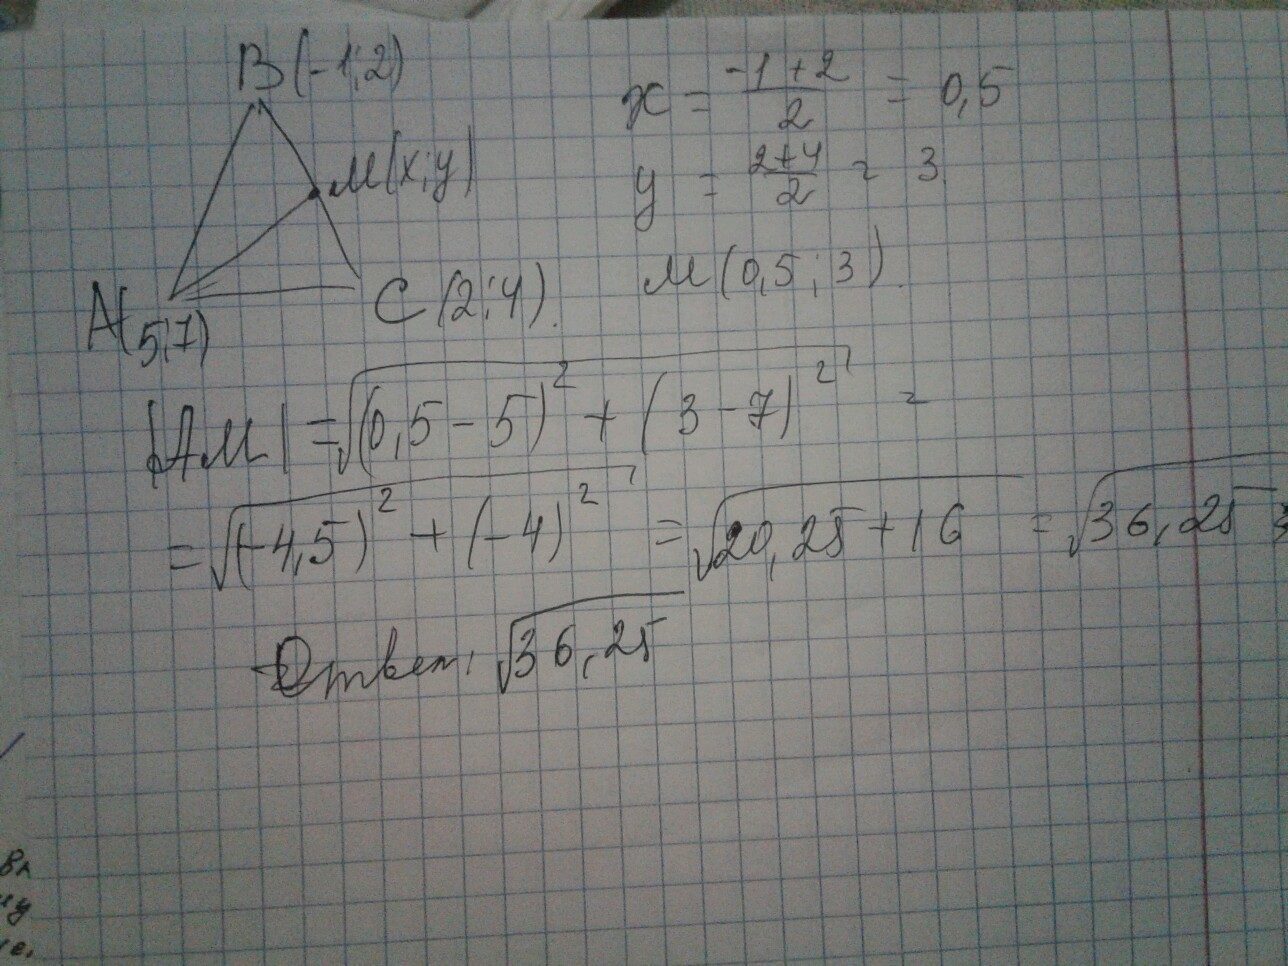 B(-1;2)
x = (-1+2)/2 = 0,5
M(x;y)
y = (2+4)/2 = 3
A(5;7)
C(2;4).
M(0,5;3).
|AM| = √((0,5-5)² + (3-7)²) =
= √((-4,5)² + (-4)²) = √(20,25+16) = √36,25
Ответ: √36,25